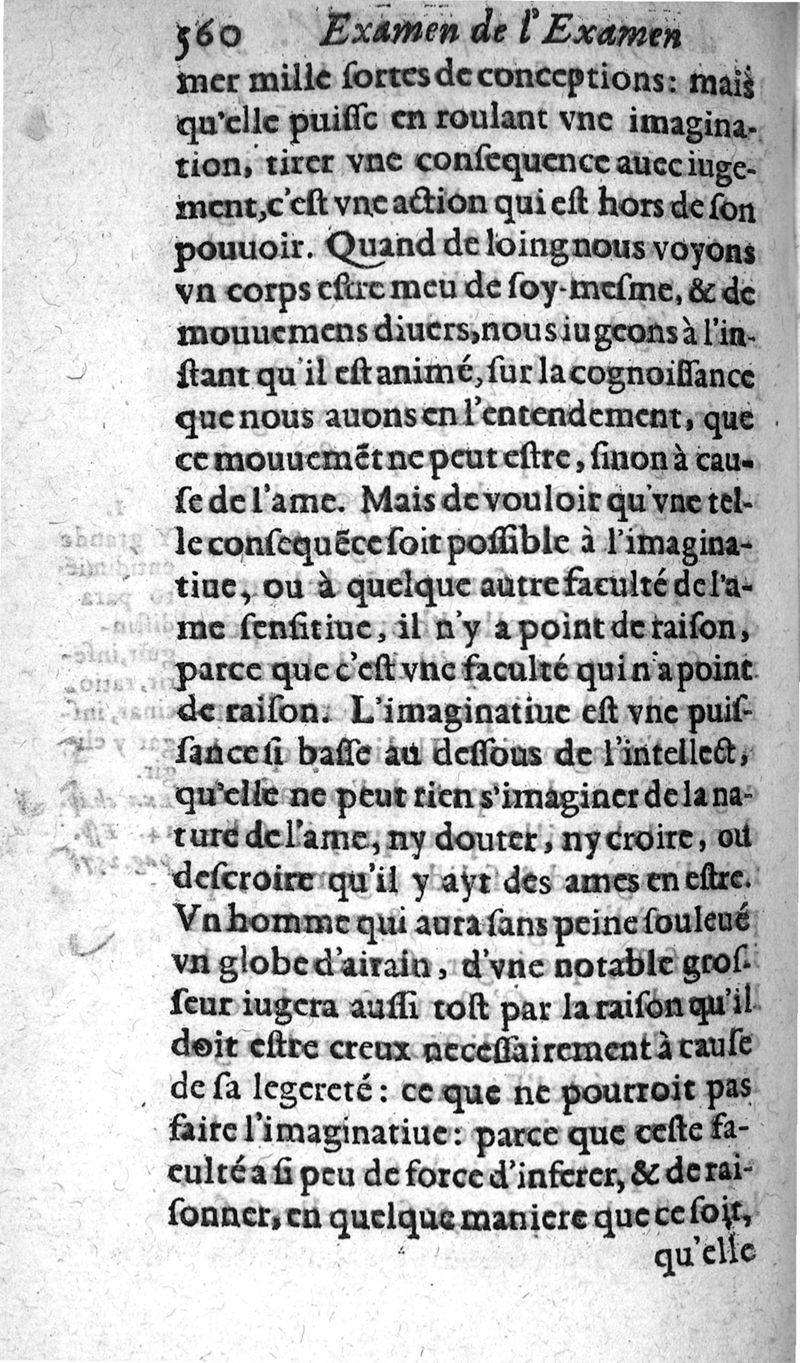 560 Examen de l'Examen
mer mille ſortes de conceptions: mais
qu'elle puiſſe en roulant vne imagina-
tion, tirer vne conſequence auec iuge-
ment, c'eſt vne action qui eſt hors de ſon
pouuoir. Quand de loing nous voyons
vn corps eſtre meu de ſoy-meſme, & de
mouuemens diuers, nous iugeons à l'in-
ſtant qu'il eſt animé, ſur la cognoiſſance
que nous auons en l'entendement, que
ce mouuemẽt ne peut eſtre, ſinon à cau-
ſe de l'ame. Mais de vouloir qu'vne tel-
le conſequẽce ſoit poſſible à l'imagina-
tiue, ou à quelque autre faculté de l'a-
me ſenſitiue, il n'y a point de raiſon,
parce que c'eſt vne faculté qui n'a point
de raiſon. L'imaginatiue eſt vne puiſ-
ſance ſi baſſe au deſſous de l'intellect,
qu'elle ne peut rien s'imaginer de la na-
ture de l'ame, ny douter, ny croire, ou
deſcroire qu'il y ayt des ames en eſtre.
Vn homme qui aura ſans peine ſouleué
vn globe d'airain, d'vne notable groſ-
ſeur iugera auſſi toſt par la raiſon qu'il
doit eſtre creux neceſſairement à cauſe
de ſa legereté: ce que ne pourroit pas
faire l'imaginatiue: parce que ceſte fa-
culté a ſi peu de force d'inferer, & de rai-
ſonner, en quelque maniere que ce ſoit,
qu'elle